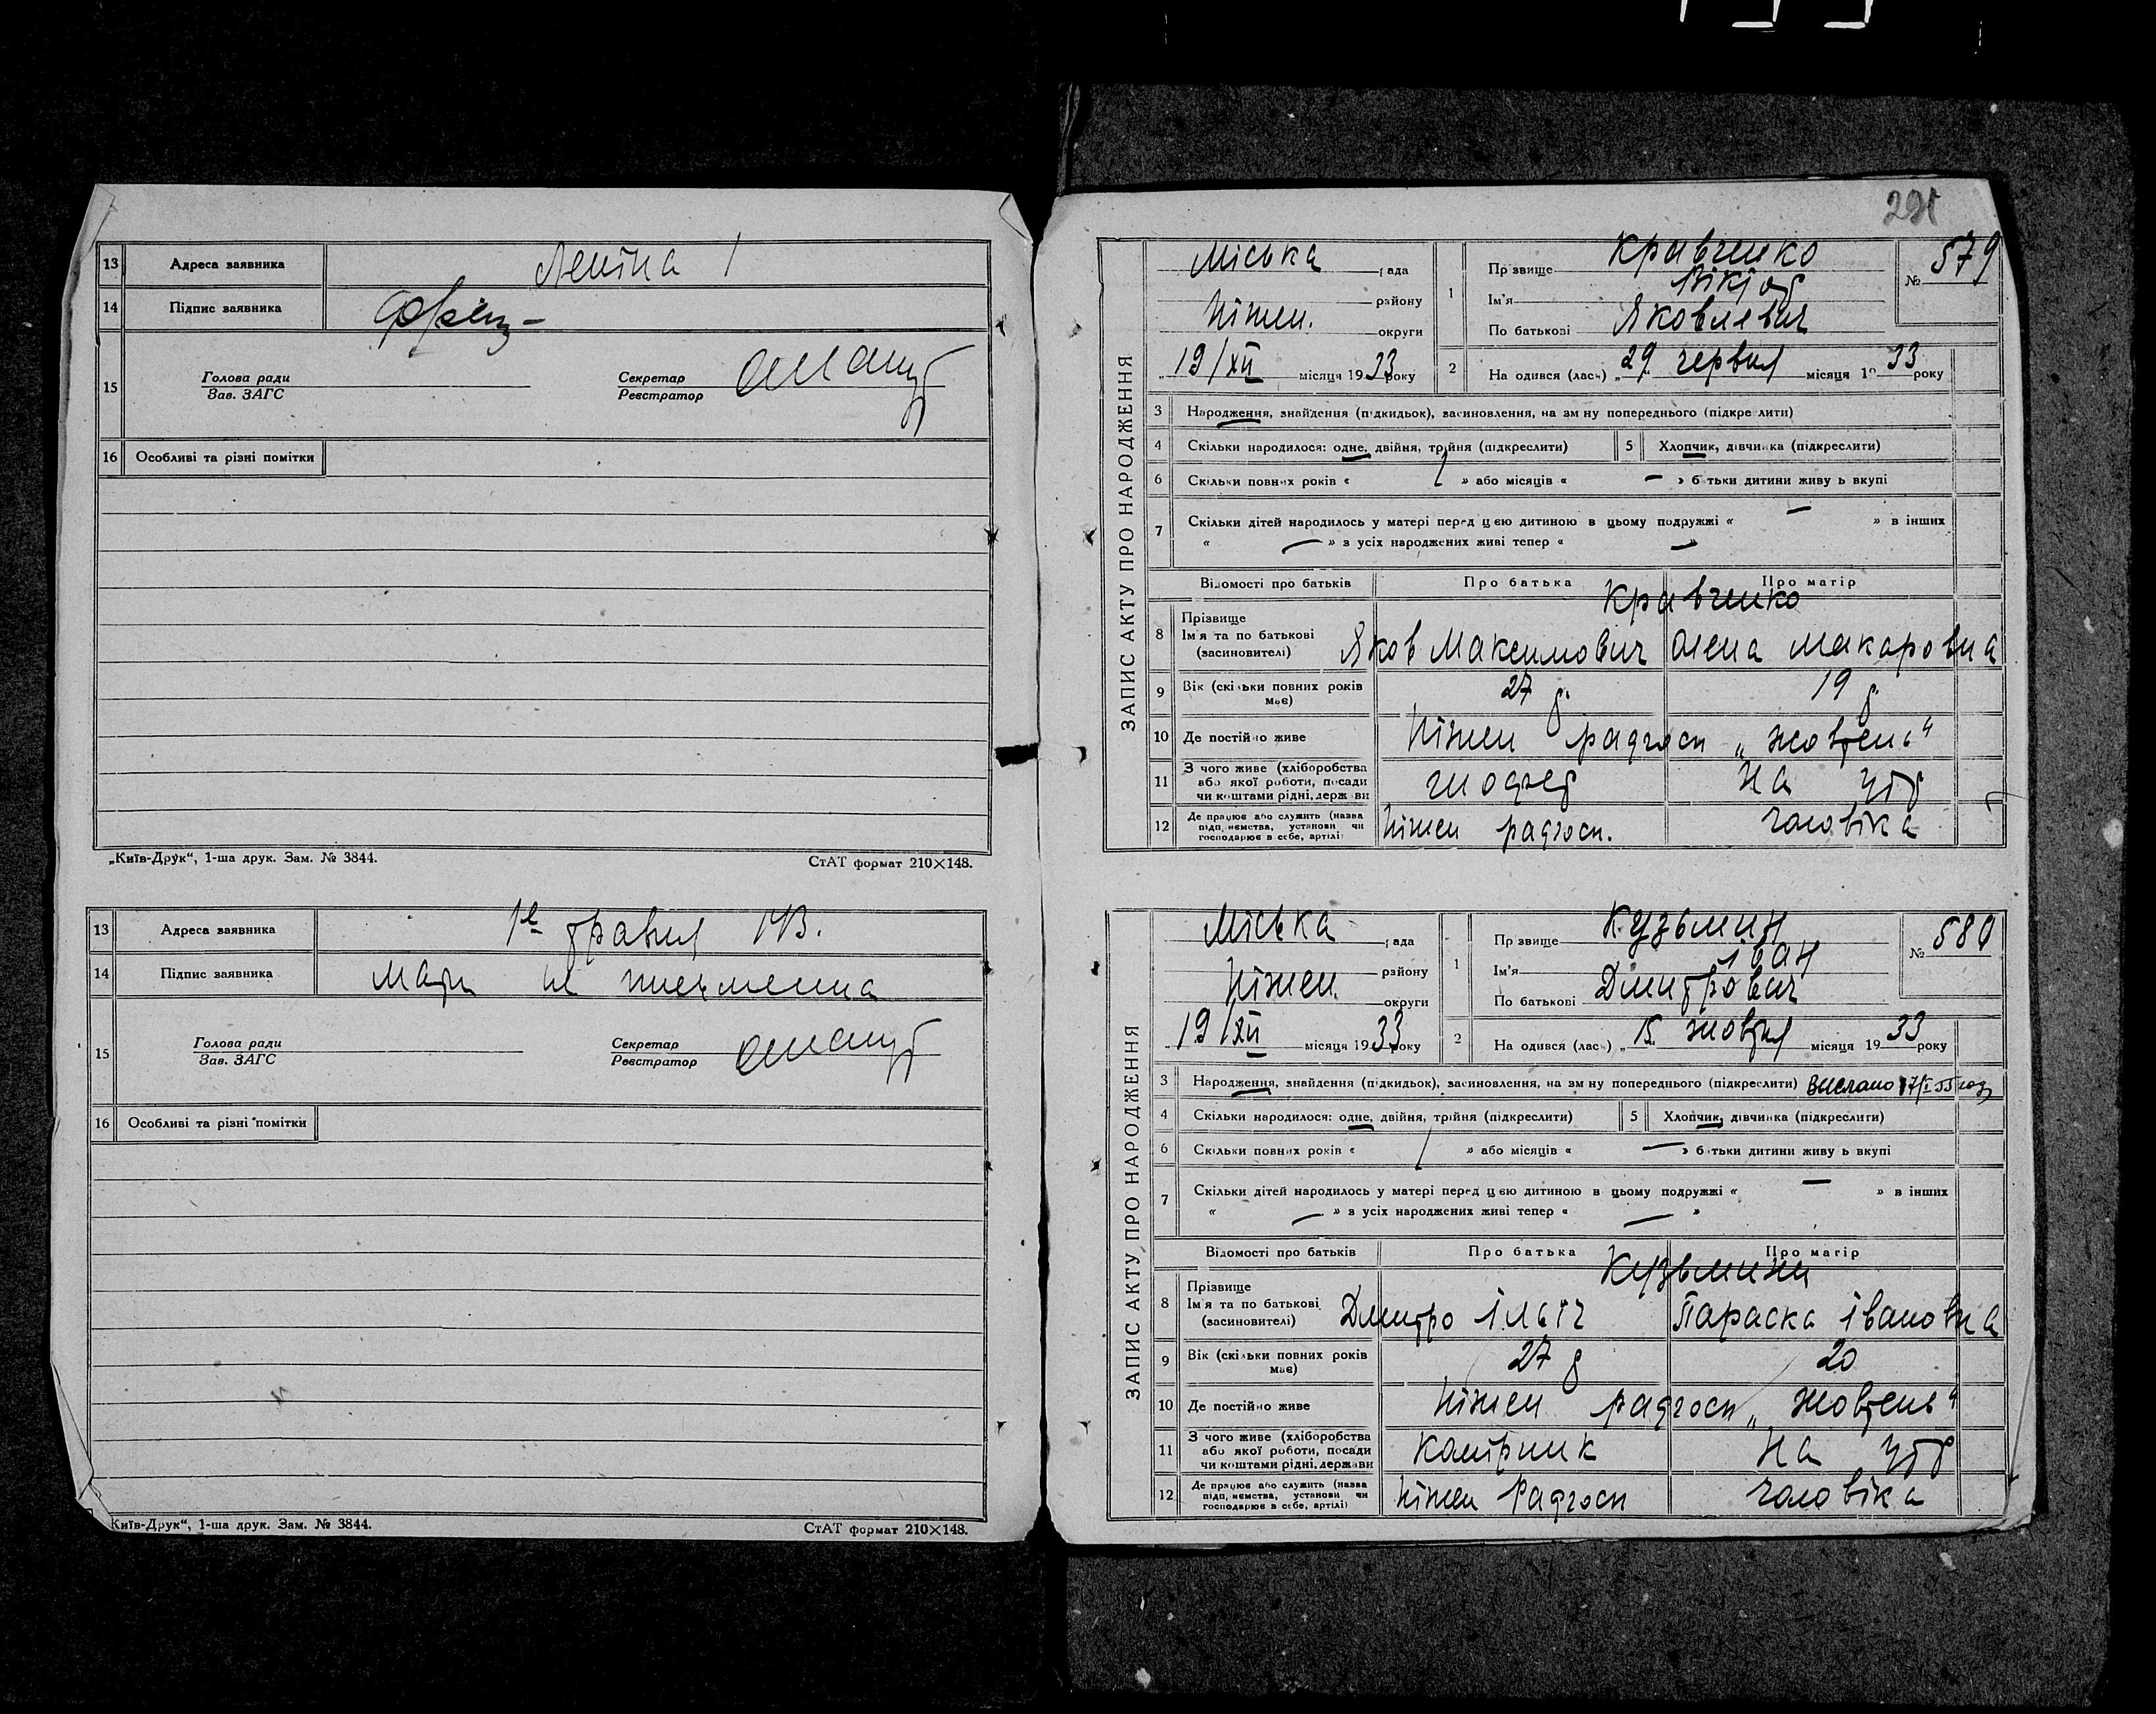 13 Адреса заявника Леніна 1
14 Підпис заявника
15 Голова ради
Зав. ЗАГС
Секретар
Реєстратор
16 Особливі та різні помітки
„Київ-Друк“, 1-ша друк. Зам. № 3844. СтАТ формат 210×148.
13 Адреса заявника 1е травня
14 Підпис заявника мати не письменна
15 Голова ради
Зав. ЗАГС
Секретар
Реєстратор
16 Особливі та різні помітки
Київ-Друк“, 1-ша друк. Зам. № 3844. СтАТ формат 210×148.
291
ЗАПИС АКТУ ПРО НАРОДЖЕННЯ
Міська рада
району
Ніжен. округи
„19/XII місяця 1933 року
1 Прізвище Кравченко
Ім'я Віктор
По батькові Яковлевич
№ 579
2 Народився (лась) „29. червня місяця 1933 року
3 Народження, знайдення (підкидьок), засиновлення, на зміну попереднього (підкреслити)
4 Скільки народилося: одне, двійня, трійня (підкреслити) 5 Хлопчик, дівчинка (підкреслити)
6 Скільки повних років « » або місяців « — » батьки дитини живуть вкупі
7 Скільки дітей народилось у матері перед цією дитиною в цьому подружжі « — » в інших
« — » з усіх народжених живі тепер « — »
Відомості про батьків Про батька Про матір
Кравченко
8 Прізвище
Ім'я та по батькові
(засиновителі) Яков Максимович Олена Макаровна
9 Вік (скільки повних років має) 27 р. 19 р.
10 Де постійно живе Ніжен радгосп „Жовтень“
11 З чого живе (хліборобства
або якої роботи, посади
чи коштами рідні, держави шофер На утр
12 Де працює або служить (назва
підприємства, установи чи
господарює в себе, артілі) Ніжен радгосп. чоловіка
ЗАПИС АКТУ ПРО НАРОДЖЕННЯ
Міська рада
району
Ніжен. округи
„19/XII місяця 1933 року
1 Прізвище Кузьмин
Ім'я Іван
По батькові Дмитрович
№ 580
2 Народився (лась) „15. жовтня місяця 1933 року
3 Народження, знайдення (підкидьок), засиновлення, на зміну попереднього (підкреслити) Выслано 17/I 55 год
4 Скільки народилося: одне, двійня, трійня (підкреслити) 5 Хлопчик, дівчинка (підкреслити)
6 Скільки повних років « » або місяців « — » батьки дитини живуть вкупі
7 Скільки дітей народилось у матері перед цією дитиною в цьому подружжі « — » в інших
« — » з усіх народжених живі тепер « — »
Відомості про батьків Про батька Про матір
Кузьмини
8 Прізвище
Ім'я та по батькові
(засиновителі) Дмитро Ільіч Параска Івановна
9 Вік (скільки повних років має) 27 р 20
10 Де постійно живе Ніжен радгосп „Жовтень“
11 З чого живе (хліборобства
або якої роботи, посади
чи коштами рідні, держави На утр
12 Де працює або служить (назва
підприємства, установи чи
господарює в себе, артілі) Ніжен Радгосп чоловіка